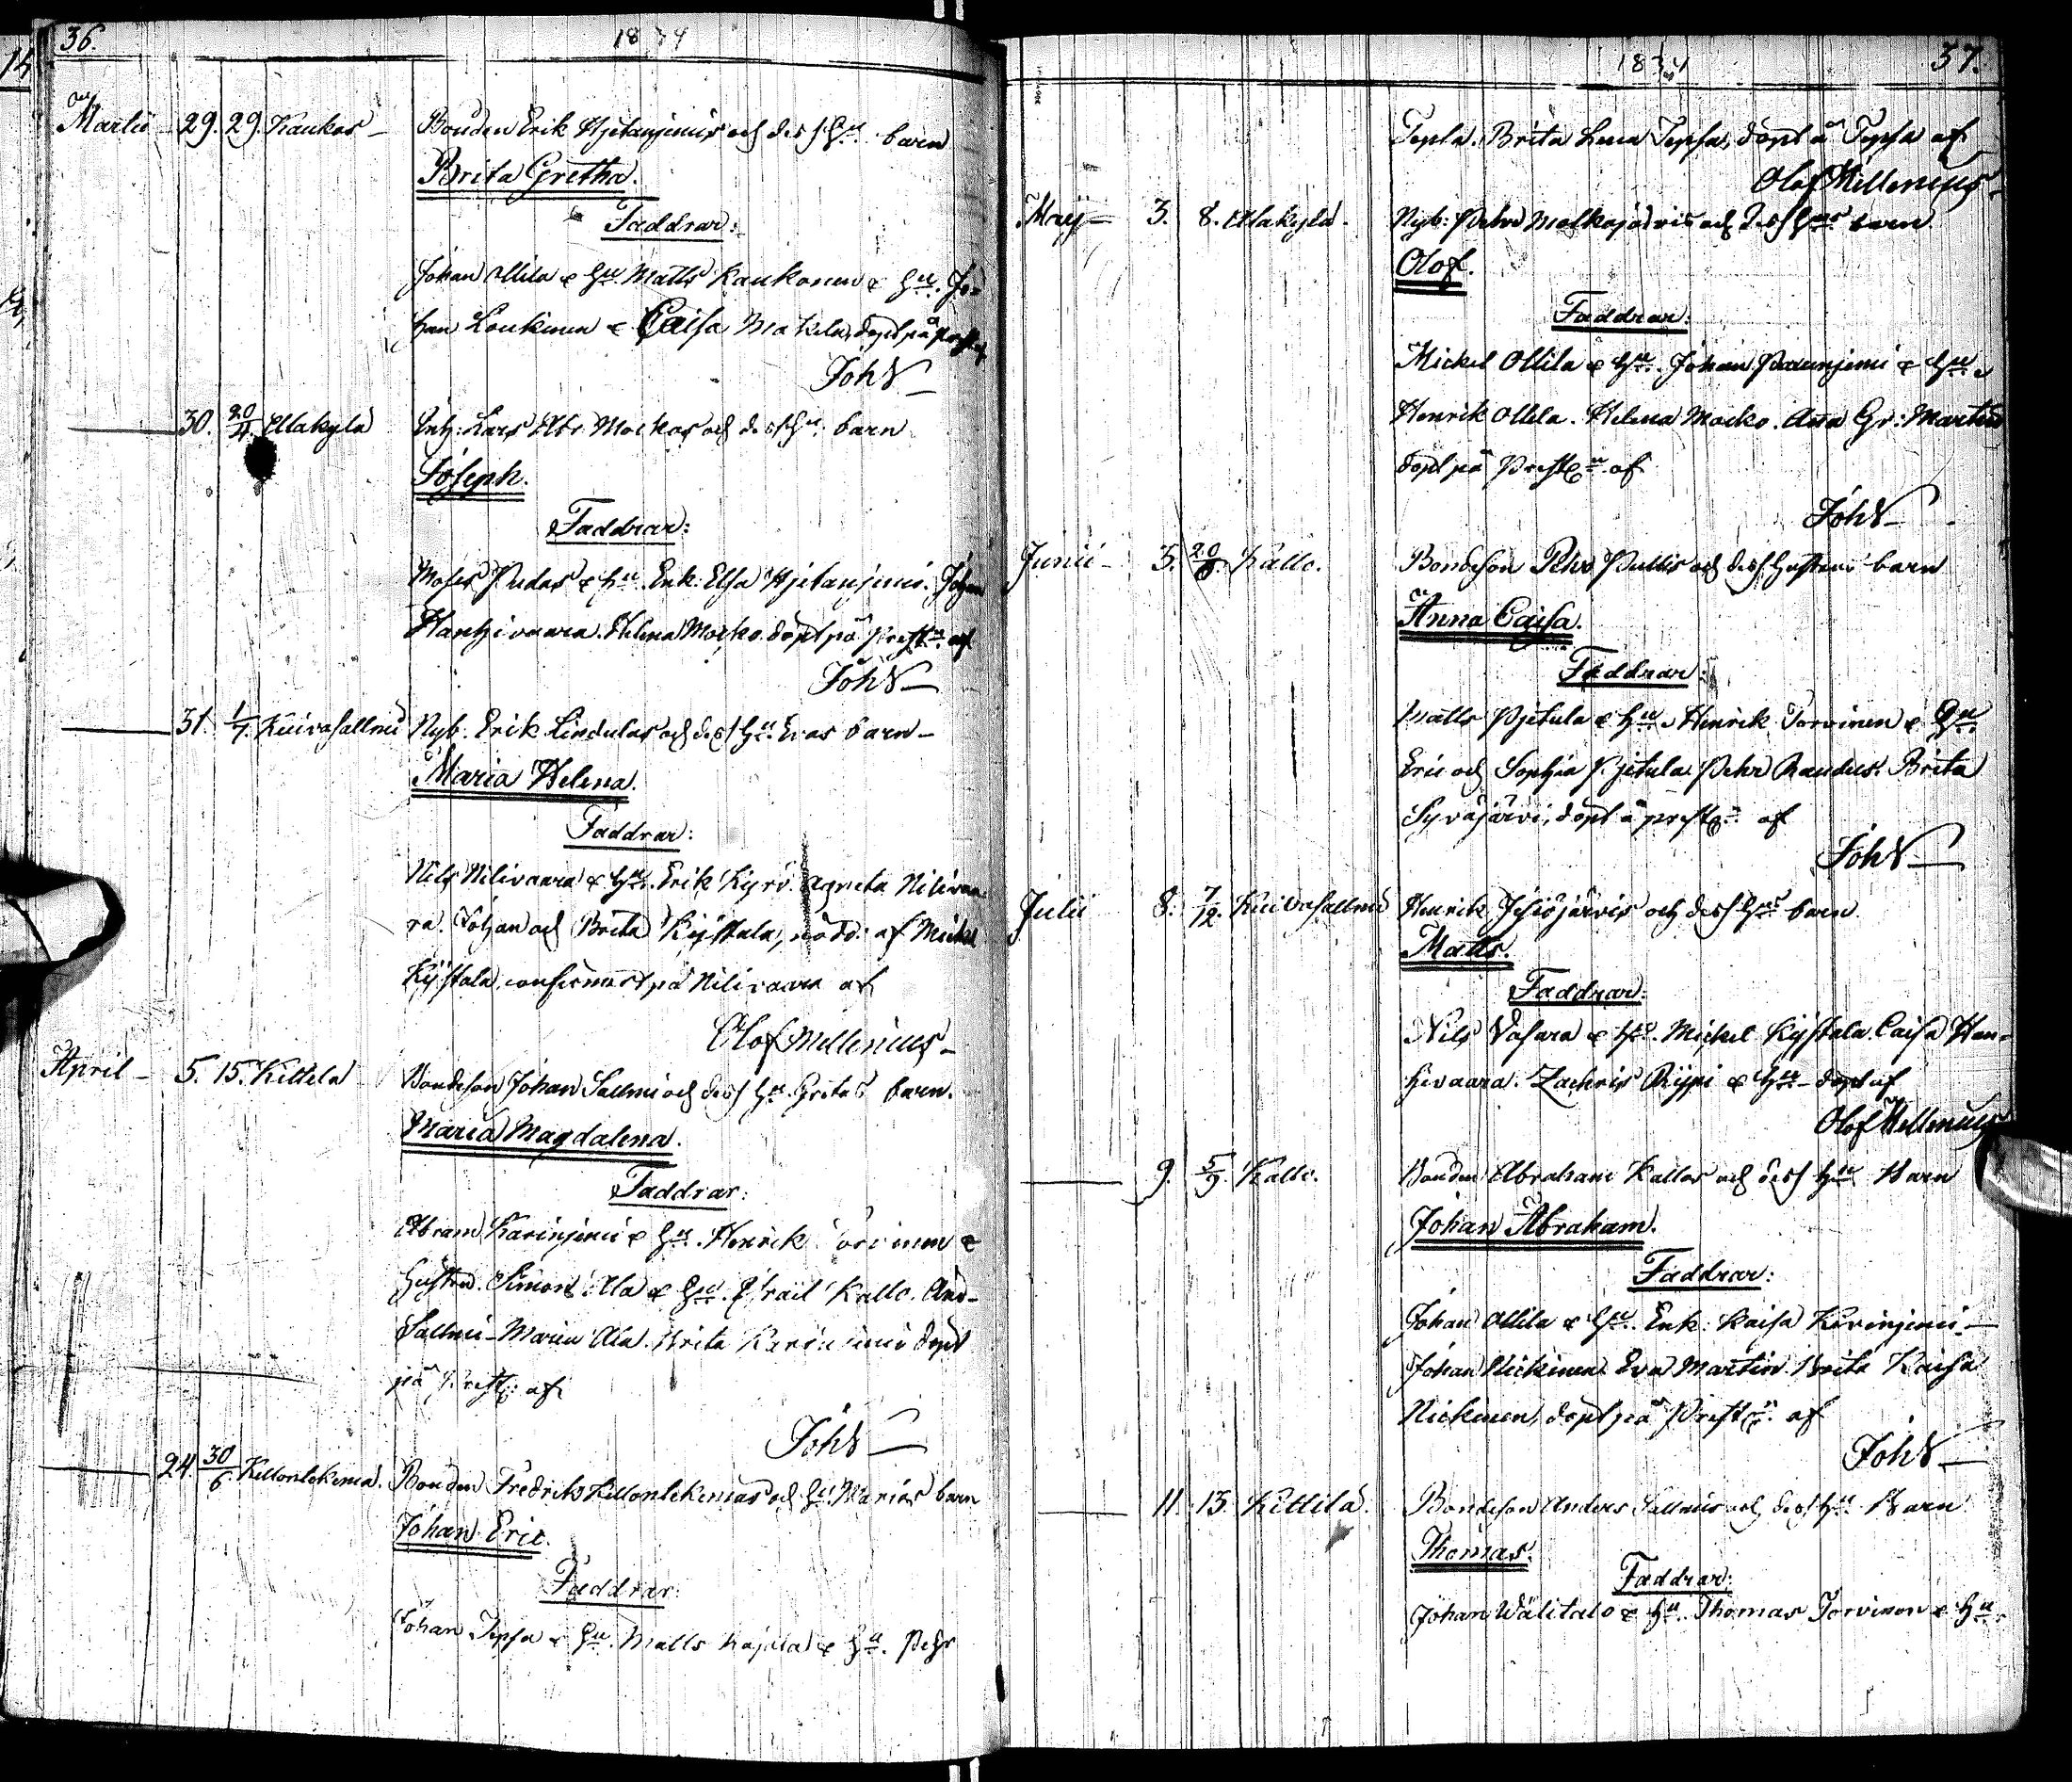 36. 1834
Martii 29. 29. Kaukos Bonden Erik Hjetanjemis och dess Hu barn
Brita Gretha.
Faddrar:
Johan Ollila & Hu. Matts Kaukonen & Hu. Jo=
han Loukinen & Caisa Makela, döpt på
JohW
30. 20/4. Alakylä Inh: Lars Abr. Mockos och dess Hu. barn
Joseph.
Faddrar:
Moses Pudas & Hu. Enk. Elsa Hjetanjemi. Johan
Hanhivaara. Helena Mocko. döpt på Prestg. af
JohW
31. 1/7. Kuivasallmi Nyb. Erik Lindulas och dess Hu. Evas barn
Maria Helena.
Faddrar:
Nils Nilivaara & Hu. Erik Kyrö. Agneta Nilivaa
ra. Johan och Brita Kijstala, nödd. af Mickel
Kijstala, confirmert på Nilivaara af
Olof Mellenius
April 5. 15. Kittela Bondeson Johan Sallmi och dess Hu. Gretas barn.
Maria Magdalena.
Faddrar:
Abram Karinjemi & Hu. Henrik Torvinen &
hustru. Simon Ala & Hu. Israil Kallo. And.
Sallmi. Maria Ala. Brita döpt
på Prestg. af
JohW
24. 30/6. Kellontekema. Bonden Fredriks Kellontekemas och Hu. Marias barn
Johan Eric.
Faddrar:
Johan Tepsa & Hu. Matts & Hu. Pehr
1834 37.
Tepsa. Brita Lena Tepsa, döpt å Tepsa af
Olof Mellenius
Maij 3. 8. Alakylä Nyb: Pehr Molkojärvis och dess Hus barn
Olof.
Faddrar:
Mickel Ollila & Hu. Johan & Hu.
Henrik Ollila. Helena Mocko. Anna Gr: Martin
döpt på Prestg. af
JohW
Junii 5. 20/6. Kallo. Bondeson Pehr Pullis och dess hustrus barn
Anna Caisa.
Faddrar:
Matts Pjetula & Hu. Henrik Torvinen & Hu.
Eric och Sophia Pjetula. Pehr Brita
Syväjärvi, döpt å prestg. af
JohW
Julii 8. 7/12. Kuivasallmi Henrik Jesiöjärvis och dess Hus barn
Matts.
Faddrar:
Nils Vasara & Hu. Mickel Kijstala. Caisa Han=
hivaara. Zachris & Hu. döpt af
Olof Mellenius
9. 5/9. Kallo. Bonden Abraham Kallos och dess Hu Barn
Johan Abraham.
Faddrar:
Johan Ollila & Hu. Enk: Kaisa Kerinjemi
Johan Nickinen. Eva Martin. Brita Kaisa
Nickinen, döpt på Prestg. af
JohW
11. 13. Kittilä. Bondeson Anders Sallmis och dess Hu Barn
Thomas.
Faddrar:
Johan Wälitalo & Hu. Thomas Torvinen & Hu.